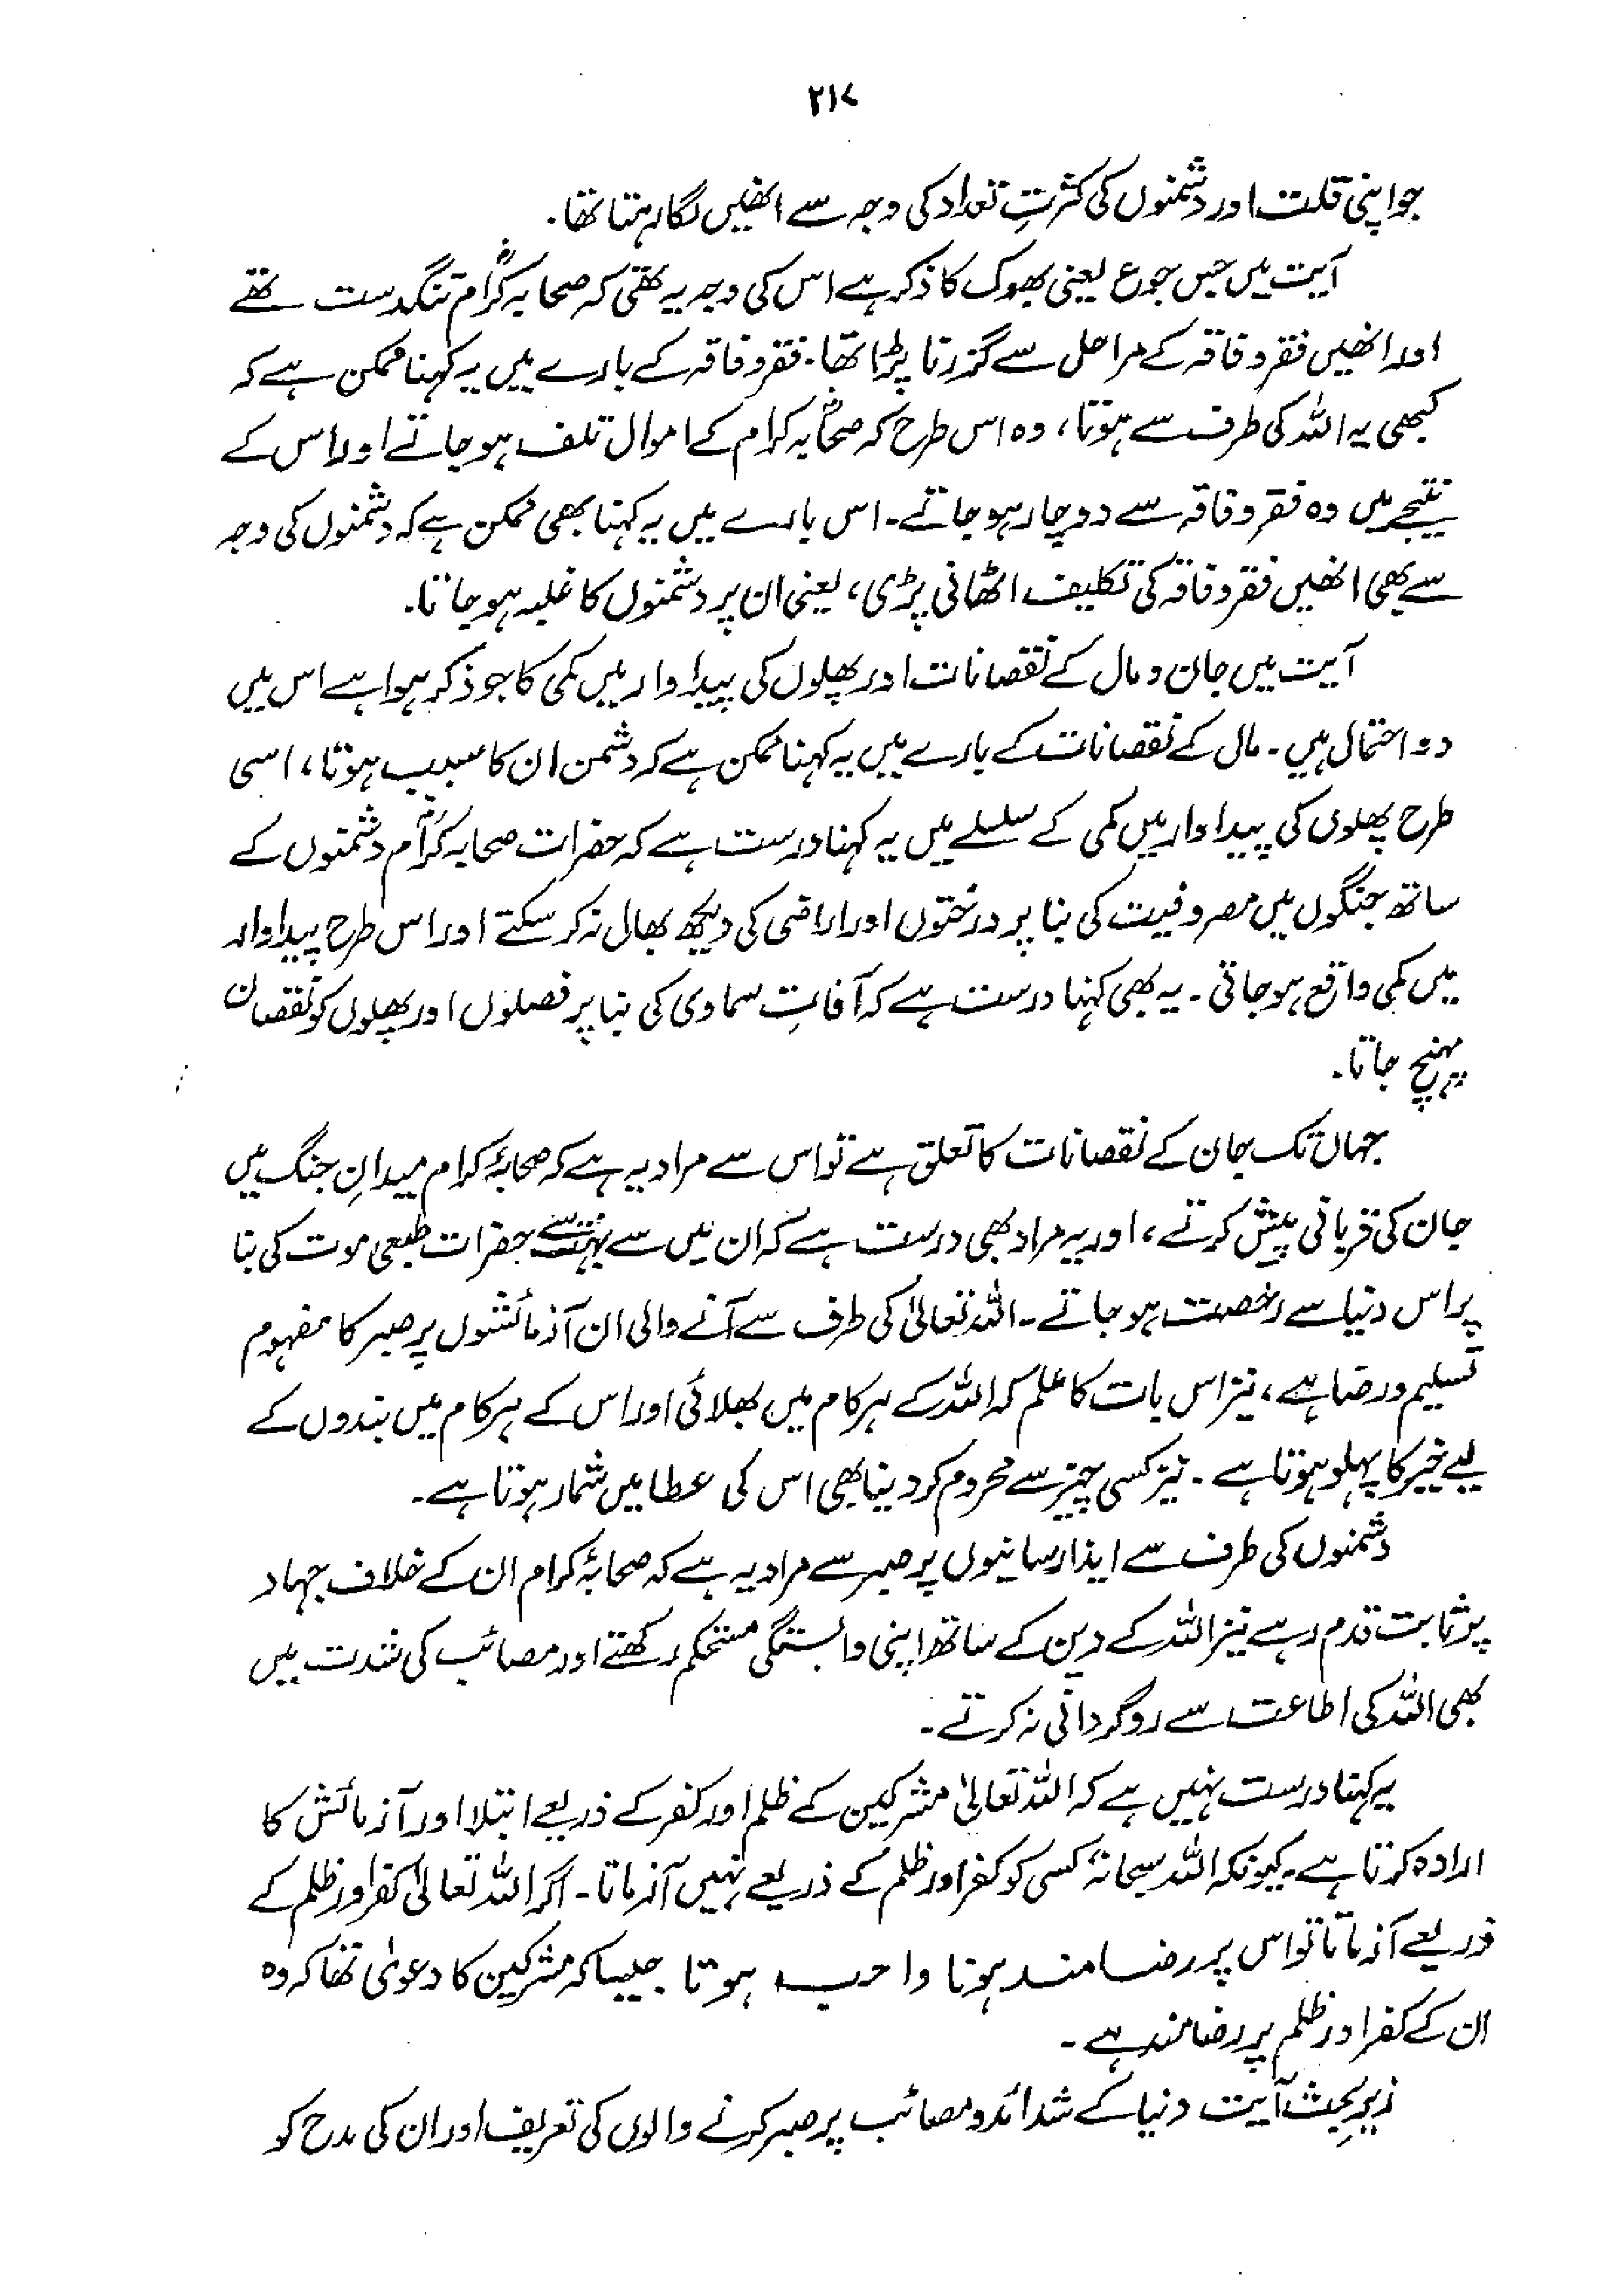 ۲۱۷
جو اپنی قلت اور دشمنوں کی کثرتِ تعداد کی وجہ سے انھیں لگا رہتا تھا۔
آیت میں جس جوع یعنی بھوک کا ذکر ہے اس کی وجہ یہ تھی کہ صحابہ کرامؓ تنگدست تھے
اور انھیں فقر و فاقہ کے مراحل سے گزرنا پڑا تھا۔ فقر و فاقہ کے بارے میں یہ کہنا ممکن ہے کہ
کبھی یہ اللہ کی طرف سے ہوتا، وہ اس طرح کہ صحابہؓ کرام کے اموال تلف ہو جاتے اور اس کے
نتیجے میں وہ فقر و فاقہ سے دوچار ہو جاتے۔ اس بارے میں یہ کہنا بھی ممکن ہے کہ دشمنوں کی وجہ
سے بھی انھیں فقر و فاقہ کی تکلیف اٹھانی پڑی، یعنی ان پر دشمنوں کا غلبہ ہو جاتا۔
آیت میں جان و مال کے نقصانات اور پھلوں کی پیداوار میں کمی کا جو ذکر ہوا ہے اس میں
دو احتمال ہیں۔ مال کے نقصانات کے بارے میں یہ کہنا ممکن ہے کہ دشمن ان کا سبب ہوتا، اسی
طرح پھلوں کی پیداوار میں کمی کے سلسلے میں یہ کہنا درست ہے کہ حضرات صحابہ کرامؓ دشمنوں کے
ساتھ جنگوں میں مصروفیت کی بنا پر درختوں اور اراضی کی دیکھ بھال نہ کر سکتے اور اس طرح پیداوار
میں کمی واقع ہو جاتی۔ یہ بھی کہنا درست ہے کہ آفاتِ سماوی کی بنا پر فصلوں اور پھلوں کو نقصان
پہنچ جاتا۔
جہاں تک جان کے نقصانات کا تعلق ہے تو اس سے مراد یہ ہے کہ صحابۂ کرام میدانِ جنگ میں
جان کی قربانی پیش کرتے، اور یہ مراد بھی درست ہے کہ ان میں سے بہت سے حضرات طبعی موت کی بنا
پر اس دنیا سے رخصت ہو جاتے۔ اللہ تعالیٰ کی طرف سے آنے والی ان آزمائشوں پر صبر کا مفہوم
تسلیم و رضا ہے، نیز اس بات کا علم کہ اللہ کے ہر کام میں بھلائی اور اس کے ہر کام میں بندوں کے
لیے خیر کا پہلو ہوتا ہے۔ نیز کسی چیز سے محروم کر دینا بھی اس کی عطا میں شمار ہوتا ہے۔
دشمنوں کی طرف سے ایذا رسانیوں پر صبر سے مراد یہ ہے کہ صحابۂ کرام ان کے خلاف جہاد
پر ثابت قدم رہے نیز اللہ کے دین کے ساتھ اپنی وابستگی مستحکم رکھتے اور مصائب کی شدت میں
بھی اللہ کی اطاعت سے روگردانی نہ کرتے۔
یہ کہنا درست نہیں ہے کہ اللہ تعالیٰ مشرکین کے ظلم اور کفر کے ذریعے ابتلا اور آزمائش کا
ارادہ کرتا ہے۔ کیونکہ اللہ سبحانہٗ کسی کو کفر اور ظلم کے ذریعے نہیں آزماتا۔ اگر اللہ تعالیٰ کفر اور ظلم کے
ذریعے آزماتا تو اس پر رضامند ہونا واجب ہوتا جیسا کہ مشرکین کا دعویٰ تھا کہ وہ
ان کے کفر اور ظلم پر رضامند ہے۔
زیرِ بحث آیت دنیا کے شدائد و مصائب پر صبر کرنے والوں کی تعریف اور ان کی مدح کو